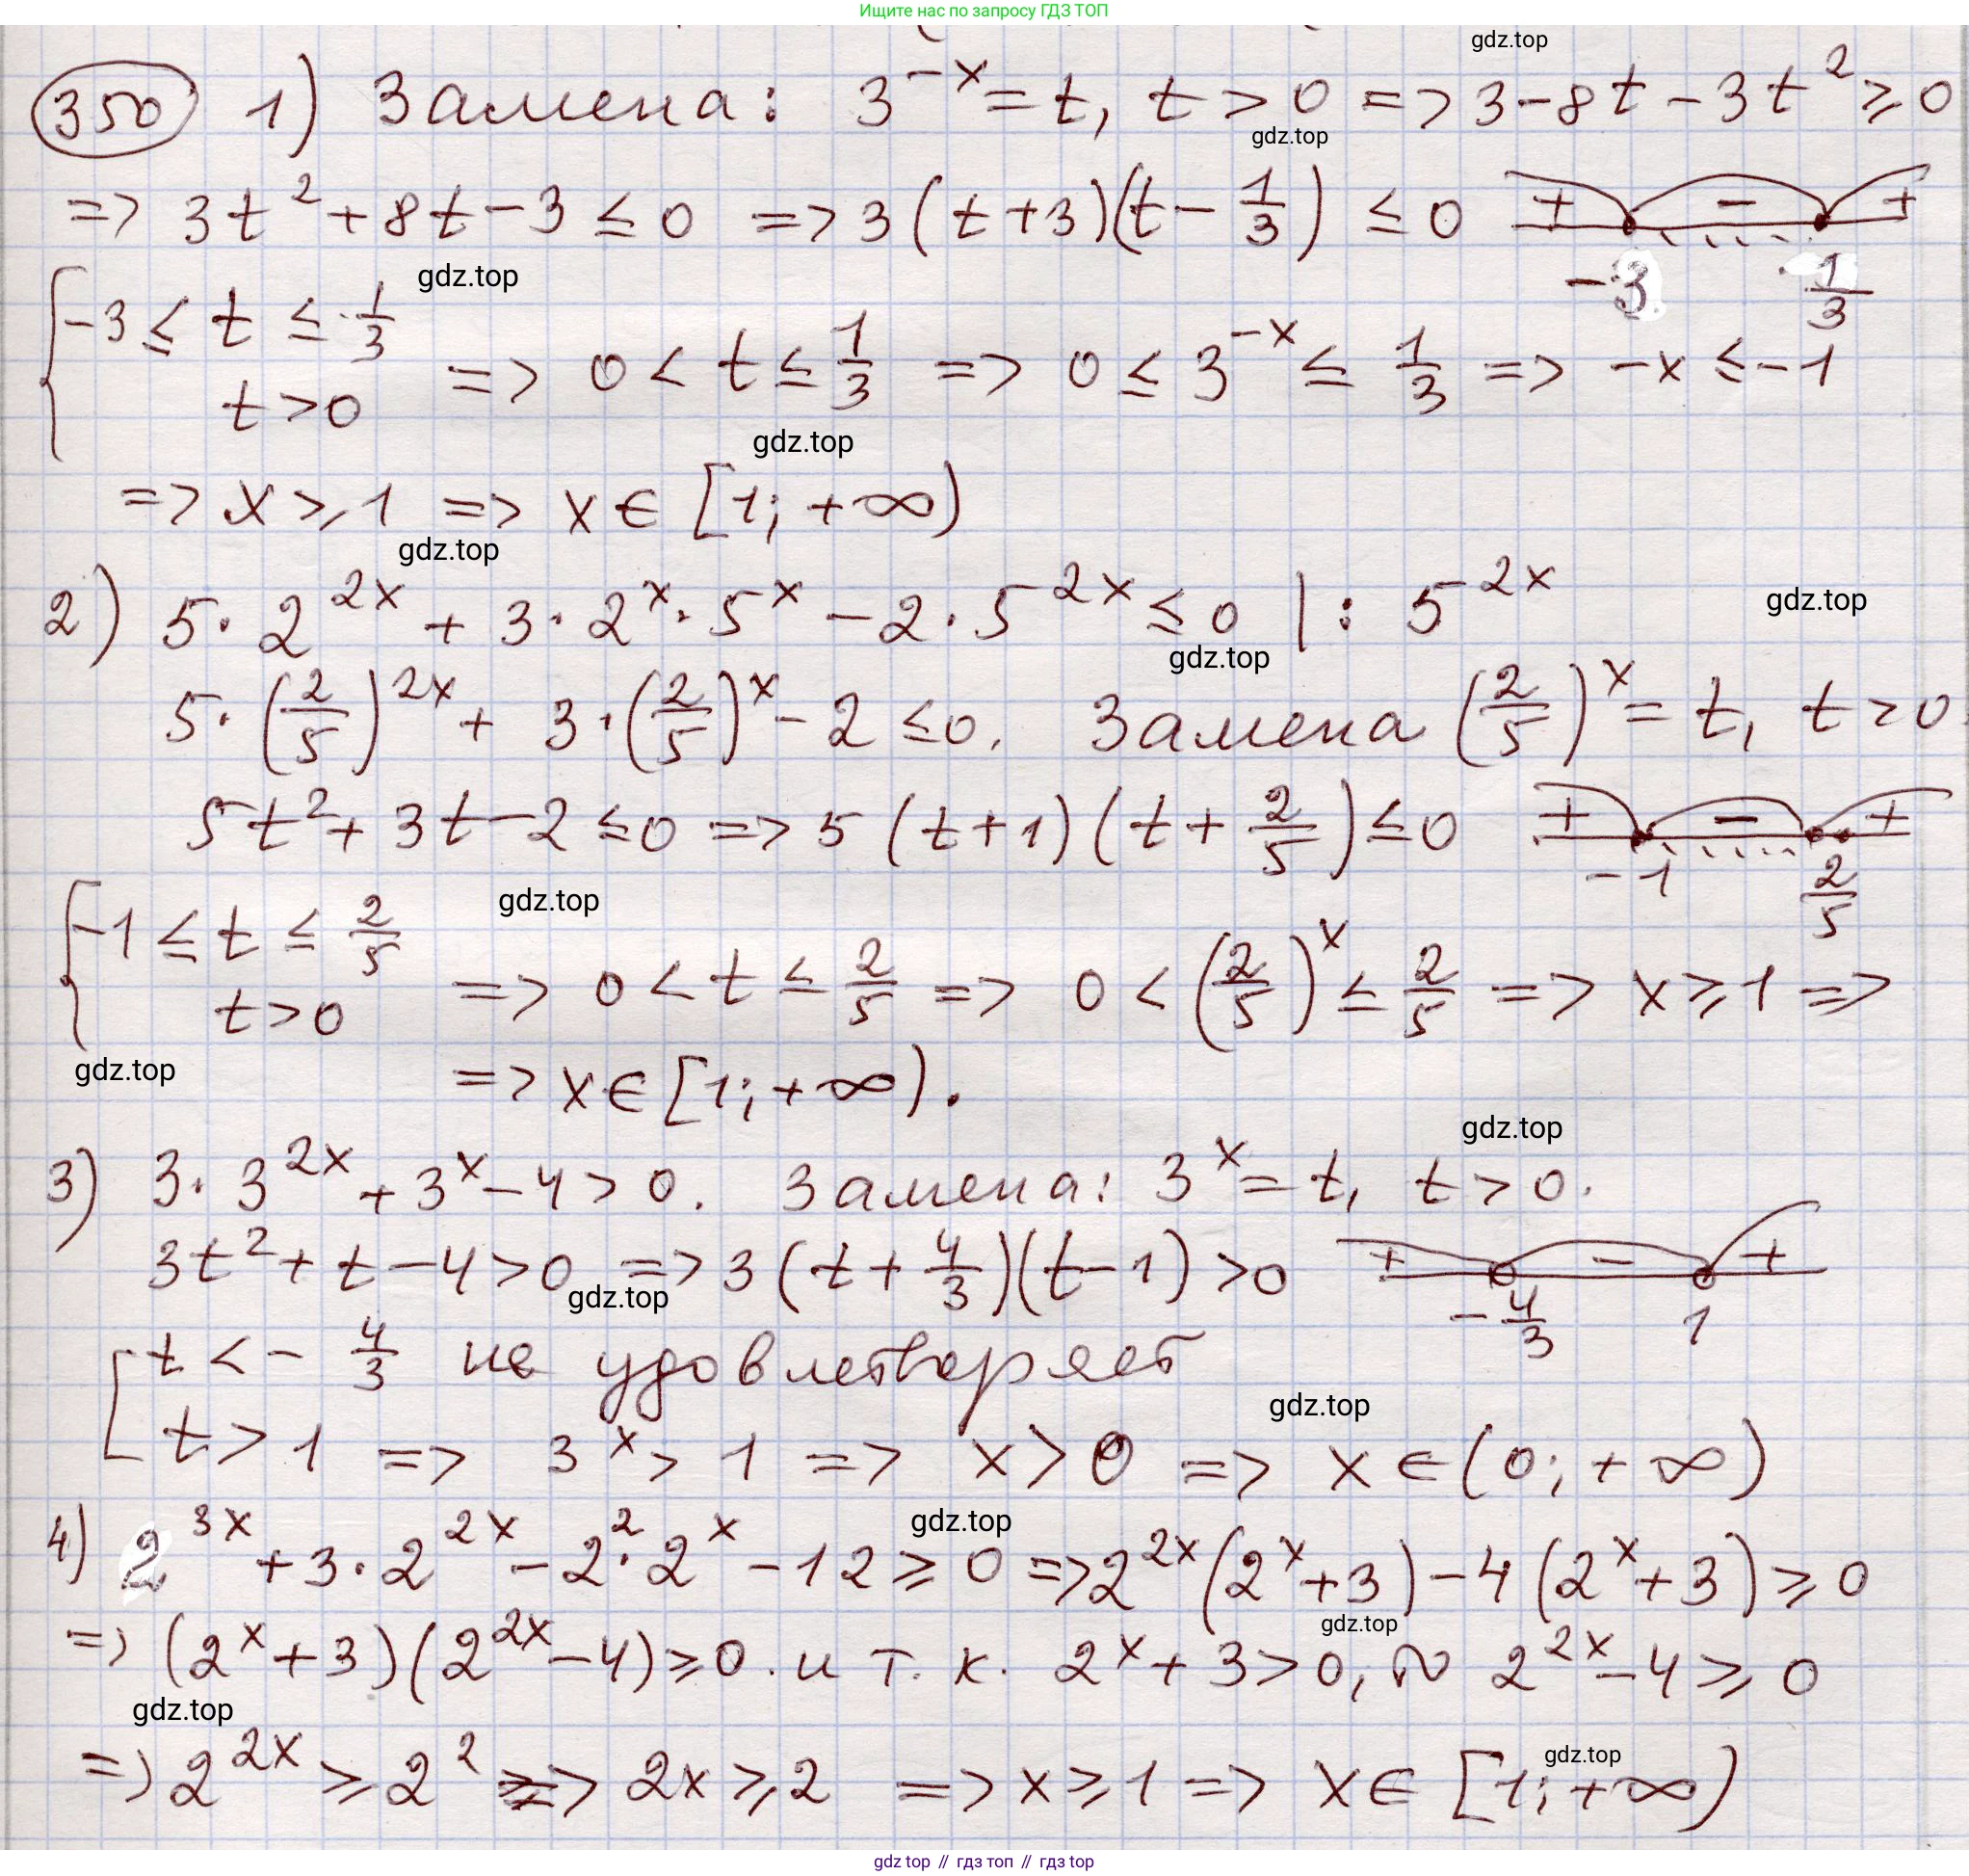 Ищите нас по запросу ГДЗ ТОП
gdz.top
350 1) Замена: 3^{-x} = t, t > 0 => 3 - 8t - 3t^2 ≥ 0
gdz.top
=> 3t^2 + 8t - 3 ≤ 0 => 3(t + 3)(t - 1/3) ≤ 0 + - + -3 1/3
gdz.top
{ -3 ≤ t ≤ 1/3
t > 0 => 0 < t ≤ 1/3 => 0 ≤ 3^{-x} ≤ 1/3 => -x ≤ -1
gdz.top
=> x ≥ 1 => x ∈ [1; +∞)
gdz.top
2) 5 · 2^{2x} + 3 · 2^x · 5^x - 2 · 5^{2x} ≤ 0 | : 5^{2x}
gdz.top
gdz.top
5 · (2/5)^{2x} + 3 · (2/5)^x - 2 ≤ 0. Замена (2/5)^x = t, t > 0.
5t^2 + 3t - 2 ≤ 0 => 5(t + 1)(t + 2/5) ≤ 0 + - + -1 2/5
gdz.top
{ -1 ≤ t ≤ 2/5
t > 0 => 0 < t ≤ 2/5 => 0 < (2/5)^x ≤ 2/5 => x ≥ 1 =>
gdz.top
=> x ∈ [1; +∞).
gdz.top
3) 3 · 3^{2x} + 3^x - 4 > 0. Замена: 3^x = t, t > 0.
3t^2 + t - 4 > 0 => 3(t + 4/3)(t - 1) > 0 + - + -4/3 1
gdz.top
[ t < - 4/3 не удовлетворяет
gdz.top
t > 1 => 3^x > 1 => x > 0 => x ∈ (0; +∞)
gdz.top
4) 2^{3x} + 3 · 2^{2x} - 2^2 · 2^x - 12 ≥ 0 => 2^{2x}(2^x + 3) - 4(2^x + 3) ≥ 0
gdz.top
=> (2^x + 3)(2^{2x} - 4) ≥ 0. и т. к. 2^x + 3 > 0, то 2^{2x} - 4 ≥ 0
gdz.top
gdz.top
=> 2^{2x} ≥ 2^2 => 2x ≥ 2 => x ≥ 1 => x ∈ [1; +∞)
gdz top // гдз топ // гдз top